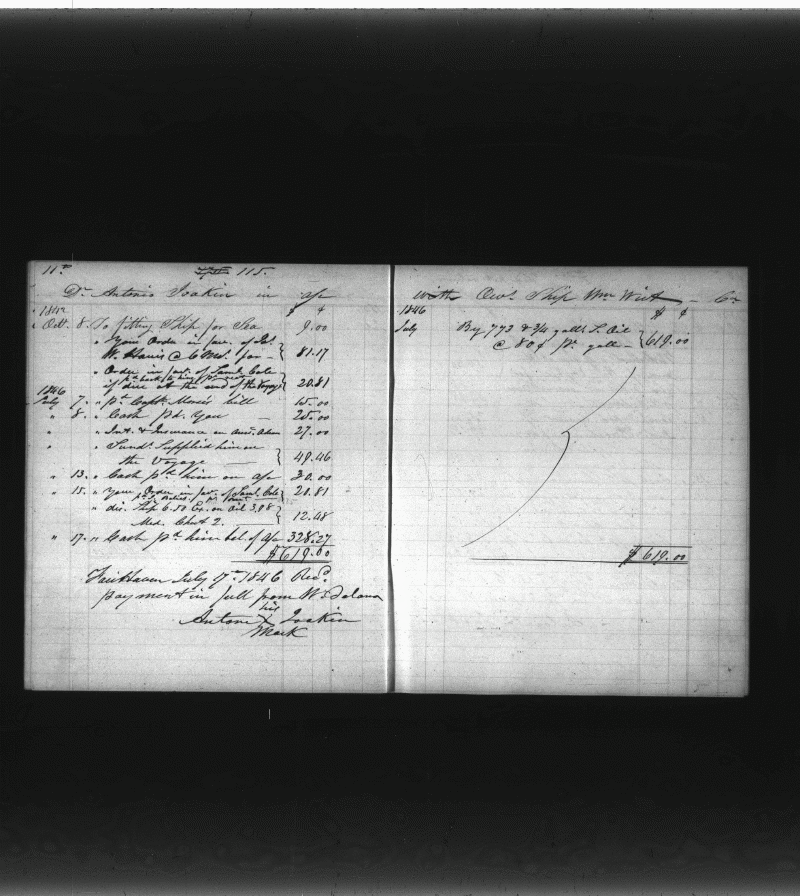 115.
Dr. Antonio Joakin in a/c
$ ¢
1842
Oct. 8. To fitting Ship for Sea 9.00
" Your Order in fav. of
W. Harris @ 6 Mos. for 81.17
" Order in fav. of Saml. Cole
if due at the end of the Voyage 20.81
1846
July 7. " pd. Capt. bill 15.00
" 8. " Cash pd. you
" " Int. & Insurance on 27.00
" " Sunds. Supplied him on
the Voyage 49.46
" 13. " Cash pd. him on a/c 30.00
" 15. " Your Order in fav. of Saml. Cole 20.81
" dis. Ship 6.50 Ex. on Oil 3.98
Med. Chest 2. 12.48
" 17. " Cash pd. him bal. of a/c 328.27
$619.00
Fairhaven July 17th 1846 Recd.
payment in full from
his
Antone X Joakin
Mark
with Owrs. Ship Wm Wirt Cr
$ ¢
1846
July By 773 & 3/4 galls S. Oil
@ 80¢ pr. gall 619.00
$619.00